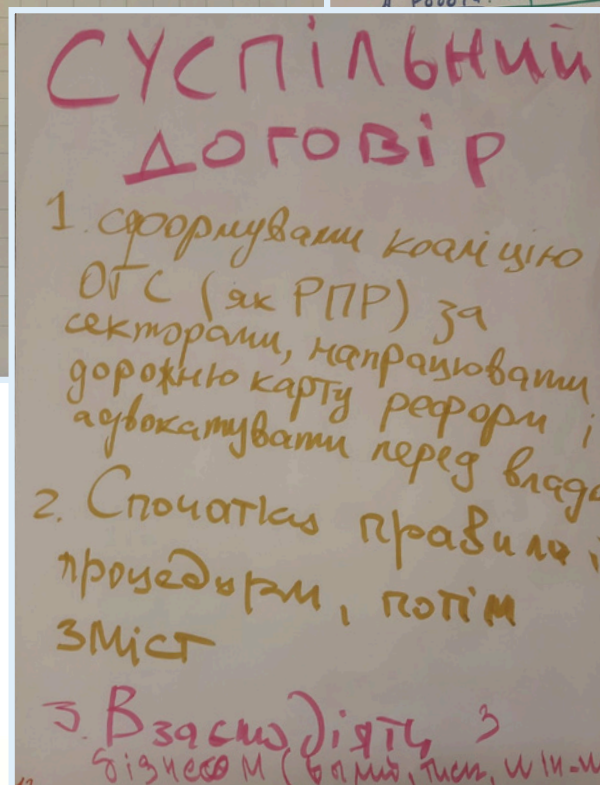 СУСПІЛЬНИЙ
ДОГОВІР
1. сформувати коаліцію
ОГС (як РПР) за
секторами, напрацювати
дорожню карту реформ і
адвокатувати перед влад
2. Спочатку правила і
процедури, потім
зміст
3. Взаємодіяти з
бізнесом